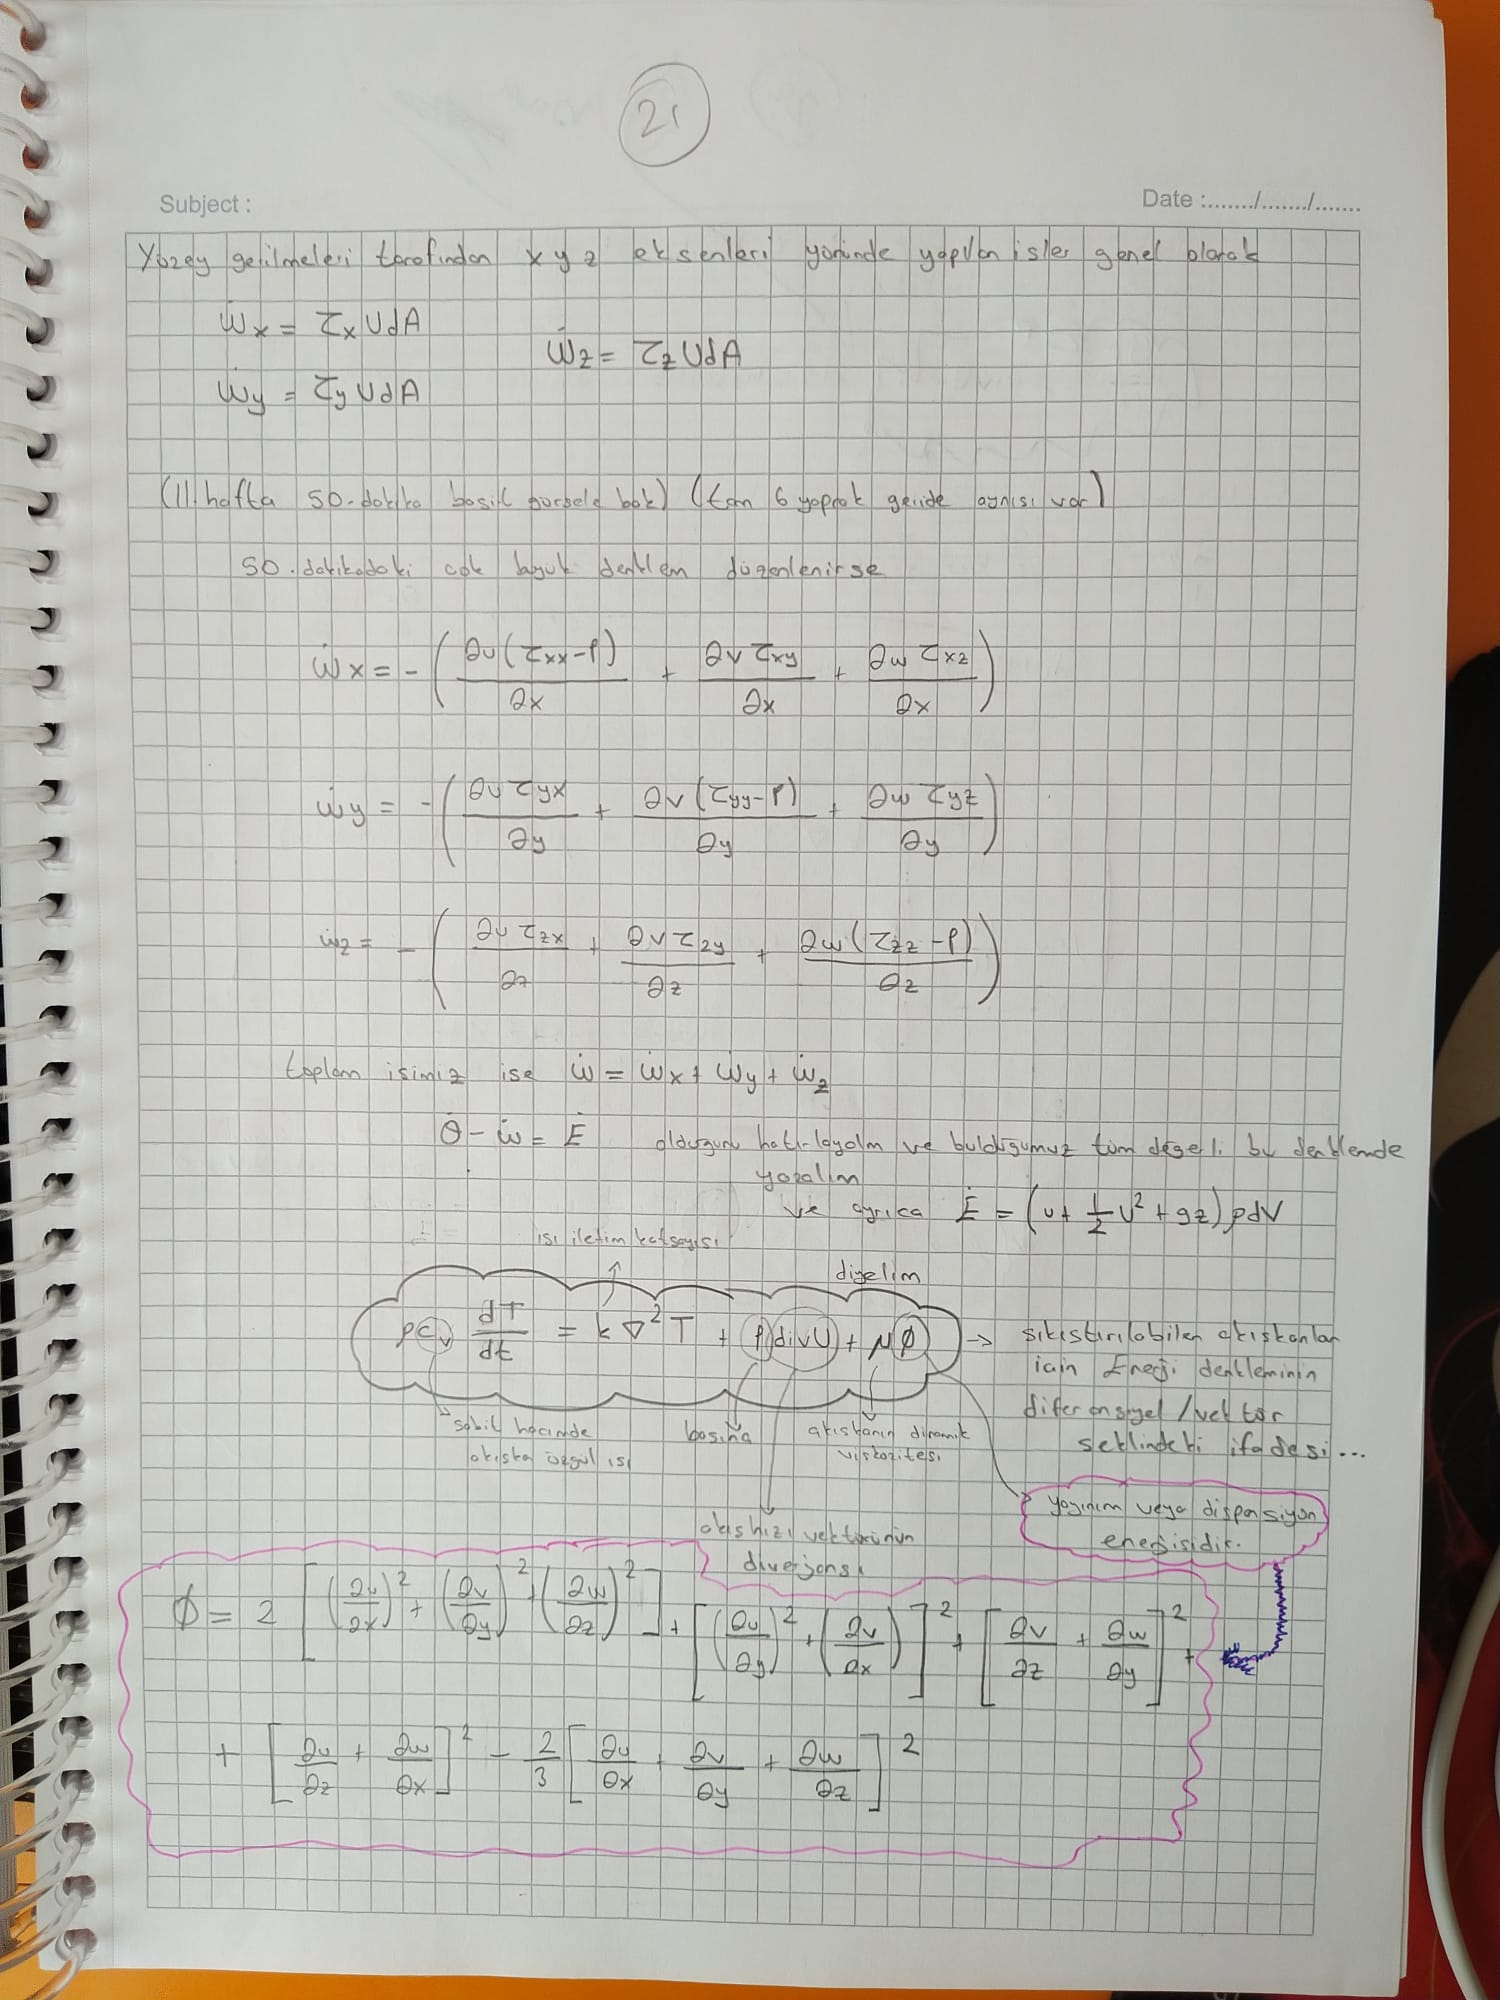 21
Subject :
Date :......./......./.......
Yüzey gerilmeleri tarafından x y z eksenleri yönünde yapılan işler genel olarak
ẇx = τx U dA
ẇz = τz U dA
ẇy = τy U dA
(11. hafta 50. dakika basit görsele bak) (tam 6 yaprak geride aynısı var)
50. dakikadaki çok büyük denklem düzenlenirse
ẇx = - ( ∂u(τxx-p)/∂x + ∂v τxy/∂x + ∂w τxz/∂x )
ẇy = - ( ∂u τyx/∂y + ∂v(τyy-p)/∂y + ∂w τyz/∂y )
ẇz = - ( ∂u τzx/∂z + ∂v τzy/∂z + ∂w(τzz-p)/∂z )
toplam işimiz ise ẇ = ẇx + ẇy + ẇz
Q̇ - ẇ = Ė olduğunu hatırlayalım ve bulduğumuz tüm değeri bu denklemde
yazalım
ve ayrıca Ė = (u + 1/2 U² + gz) ρdV
ısı iletim katsayısı
diyelim
ρCv dT/dt = k ∇²T + p divU + μ Φ → sıkıştırılabilen akışkanlar
için Enerji denkleminin
diferansiyel / vektör
şeklindeki ifadesi...
sabit hacimde
akışka özgül ısı
basınç
akışkanın dinamik
viskozitesi
yayınım veya dispersiyon
enerjisidir.
akış hızı vektörünün
diverjansı
Φ = 2 [ (∂u/∂x)² + (∂v/∂y)² + (∂w/∂z)² ] + [ (∂u/∂y)² + (∂v/∂x) ]² + [ ∂v/∂z + ∂w/∂y ]² +
+ [ ∂u/∂z + ∂w/∂x ]² - 2/3 [ ∂u/∂x + ∂v/∂y + ∂w/∂z ]²